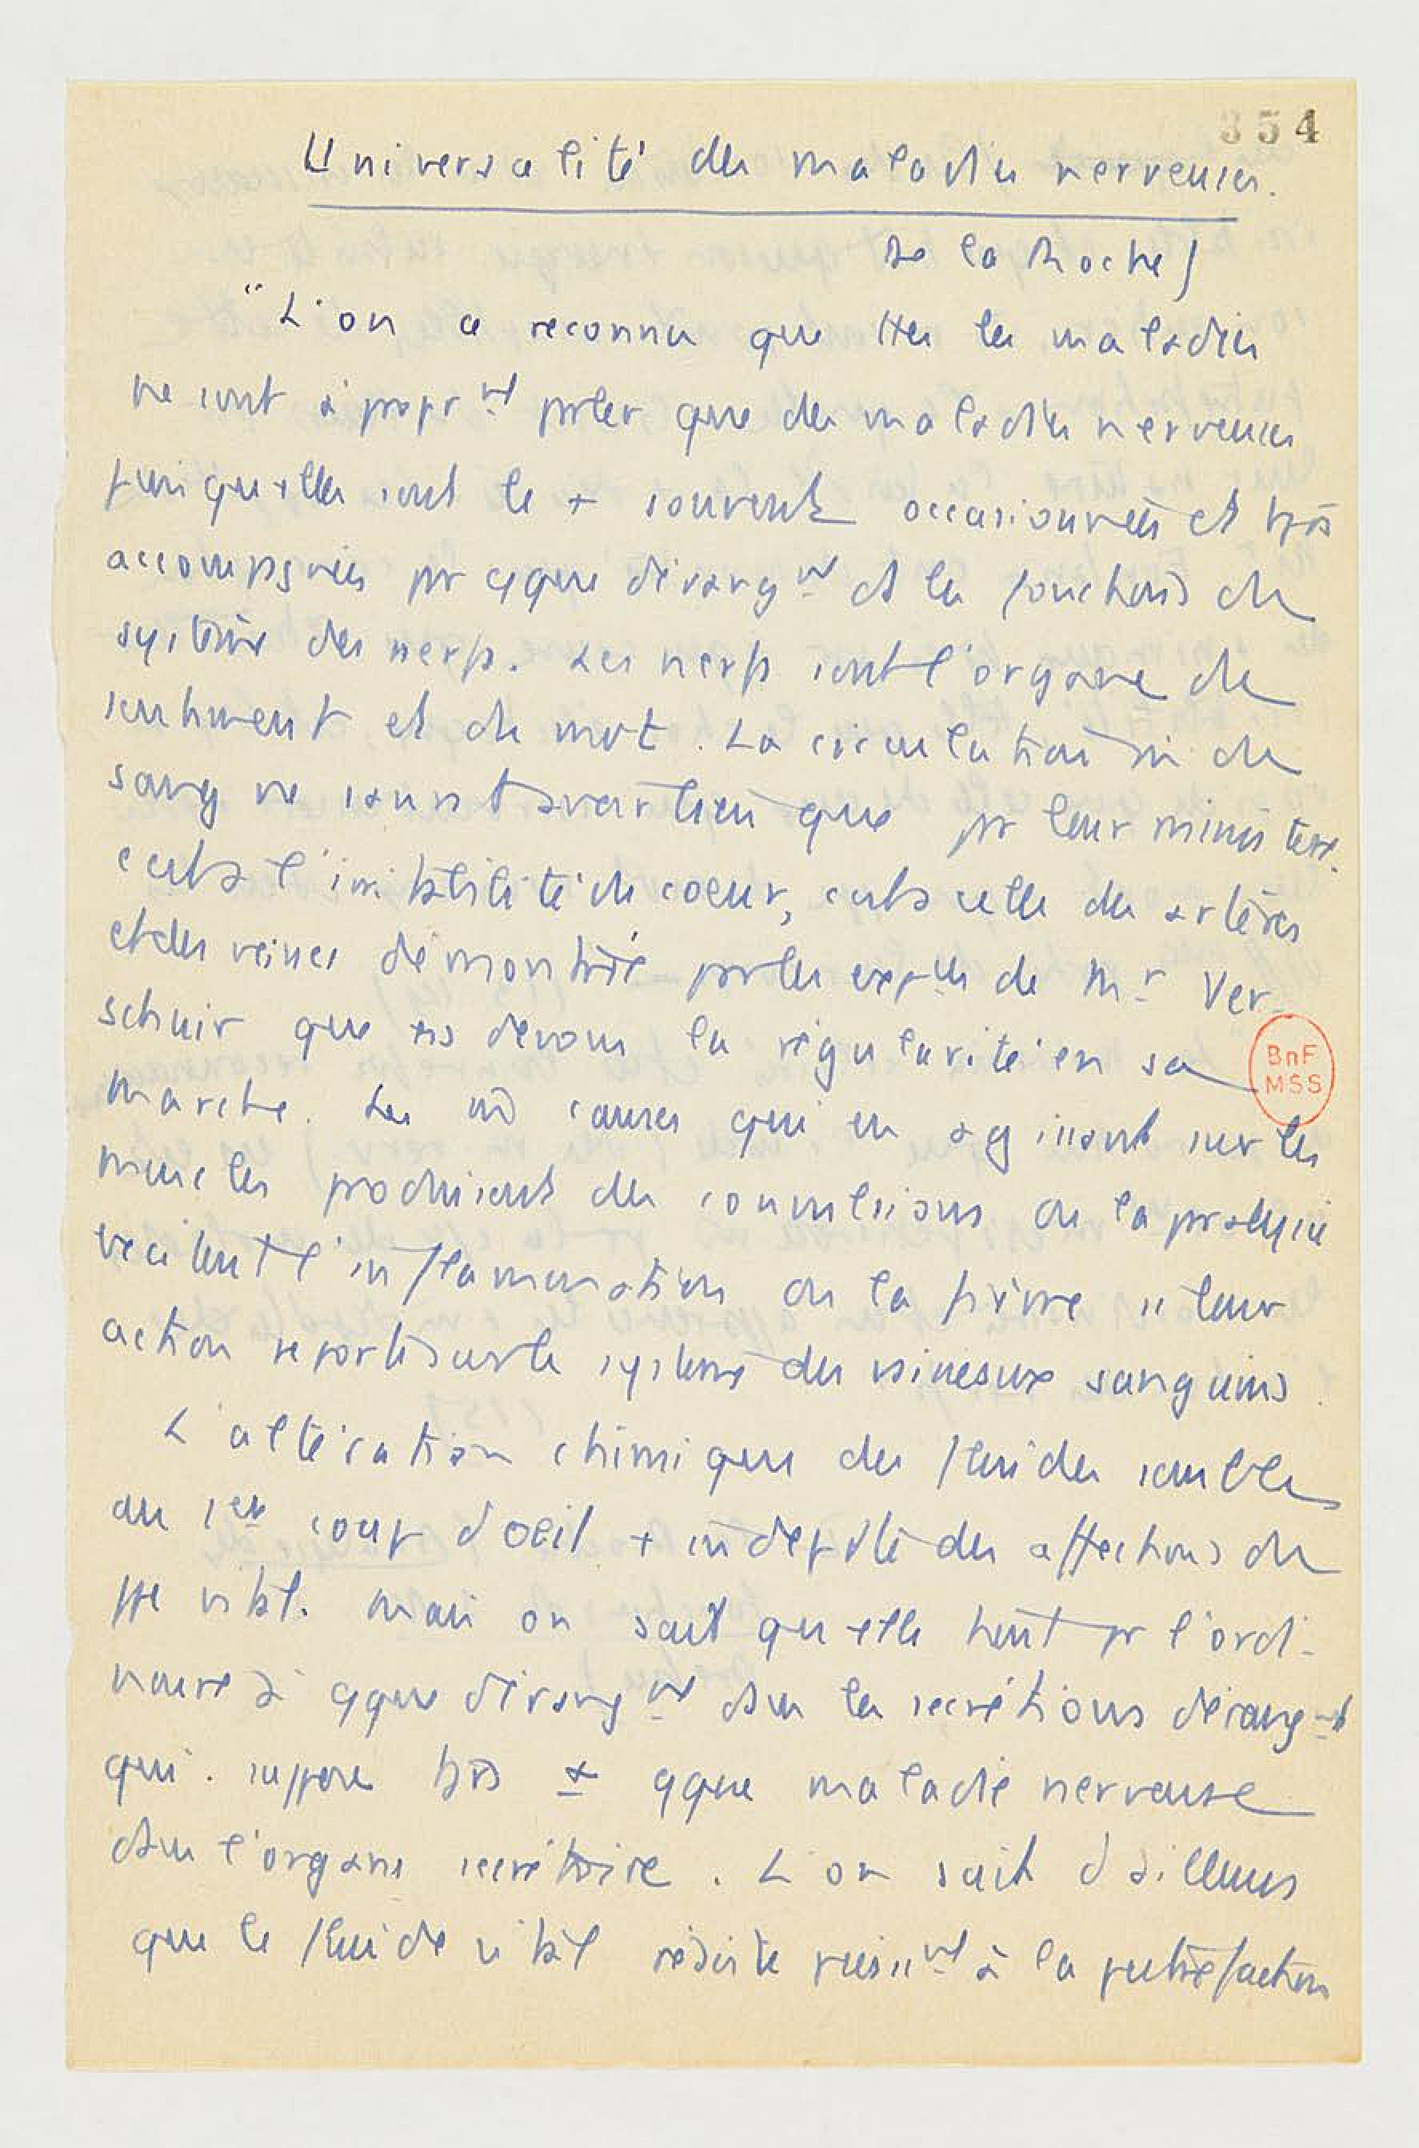 354
Universalité des maladies nerveuses.
De la Roche)
"L'on a reconnu que ttes les maladies
ne sont à propr nt prler que des maladies nerveuses
puisqu'elles sont le + souvent occasionnées et tjrs
accompagnées pr qque dérang nt ds les fonctions du
système des nerfs. Les nerfs sont l'organe du
sentiment et du mvt. La circulation du
sang ne s'entretient que pr leur ministère.
c'est à l'irritabilité du coeur, c'est à celle des artères
et des veines démontrée pr les exp ces de Mr Ver-
schuir que ns devons la régularité en sa
marche. Les causes qui en agissant sur les
muscles produisent des convulsions ou la paralysie
excitent l'inflammation ou la fièvre si leur
action se porte sur le système des vaisseaux sanguins.
L'altération chimique des fluides semble
au 1er coup d'oeil + indepdte des affections du
ppe vital. Mais on sait qu'elle tient pr l'ordi-
naire à qque dérang nt ds les secrétions dérang nt
qui suppose tjrs qque maladie nerveuse
ds l'organe secrétoire. L'on sait d'ailleurs
que le fluide vital résiste puiss nt à la putréfaction
BnF
MSS